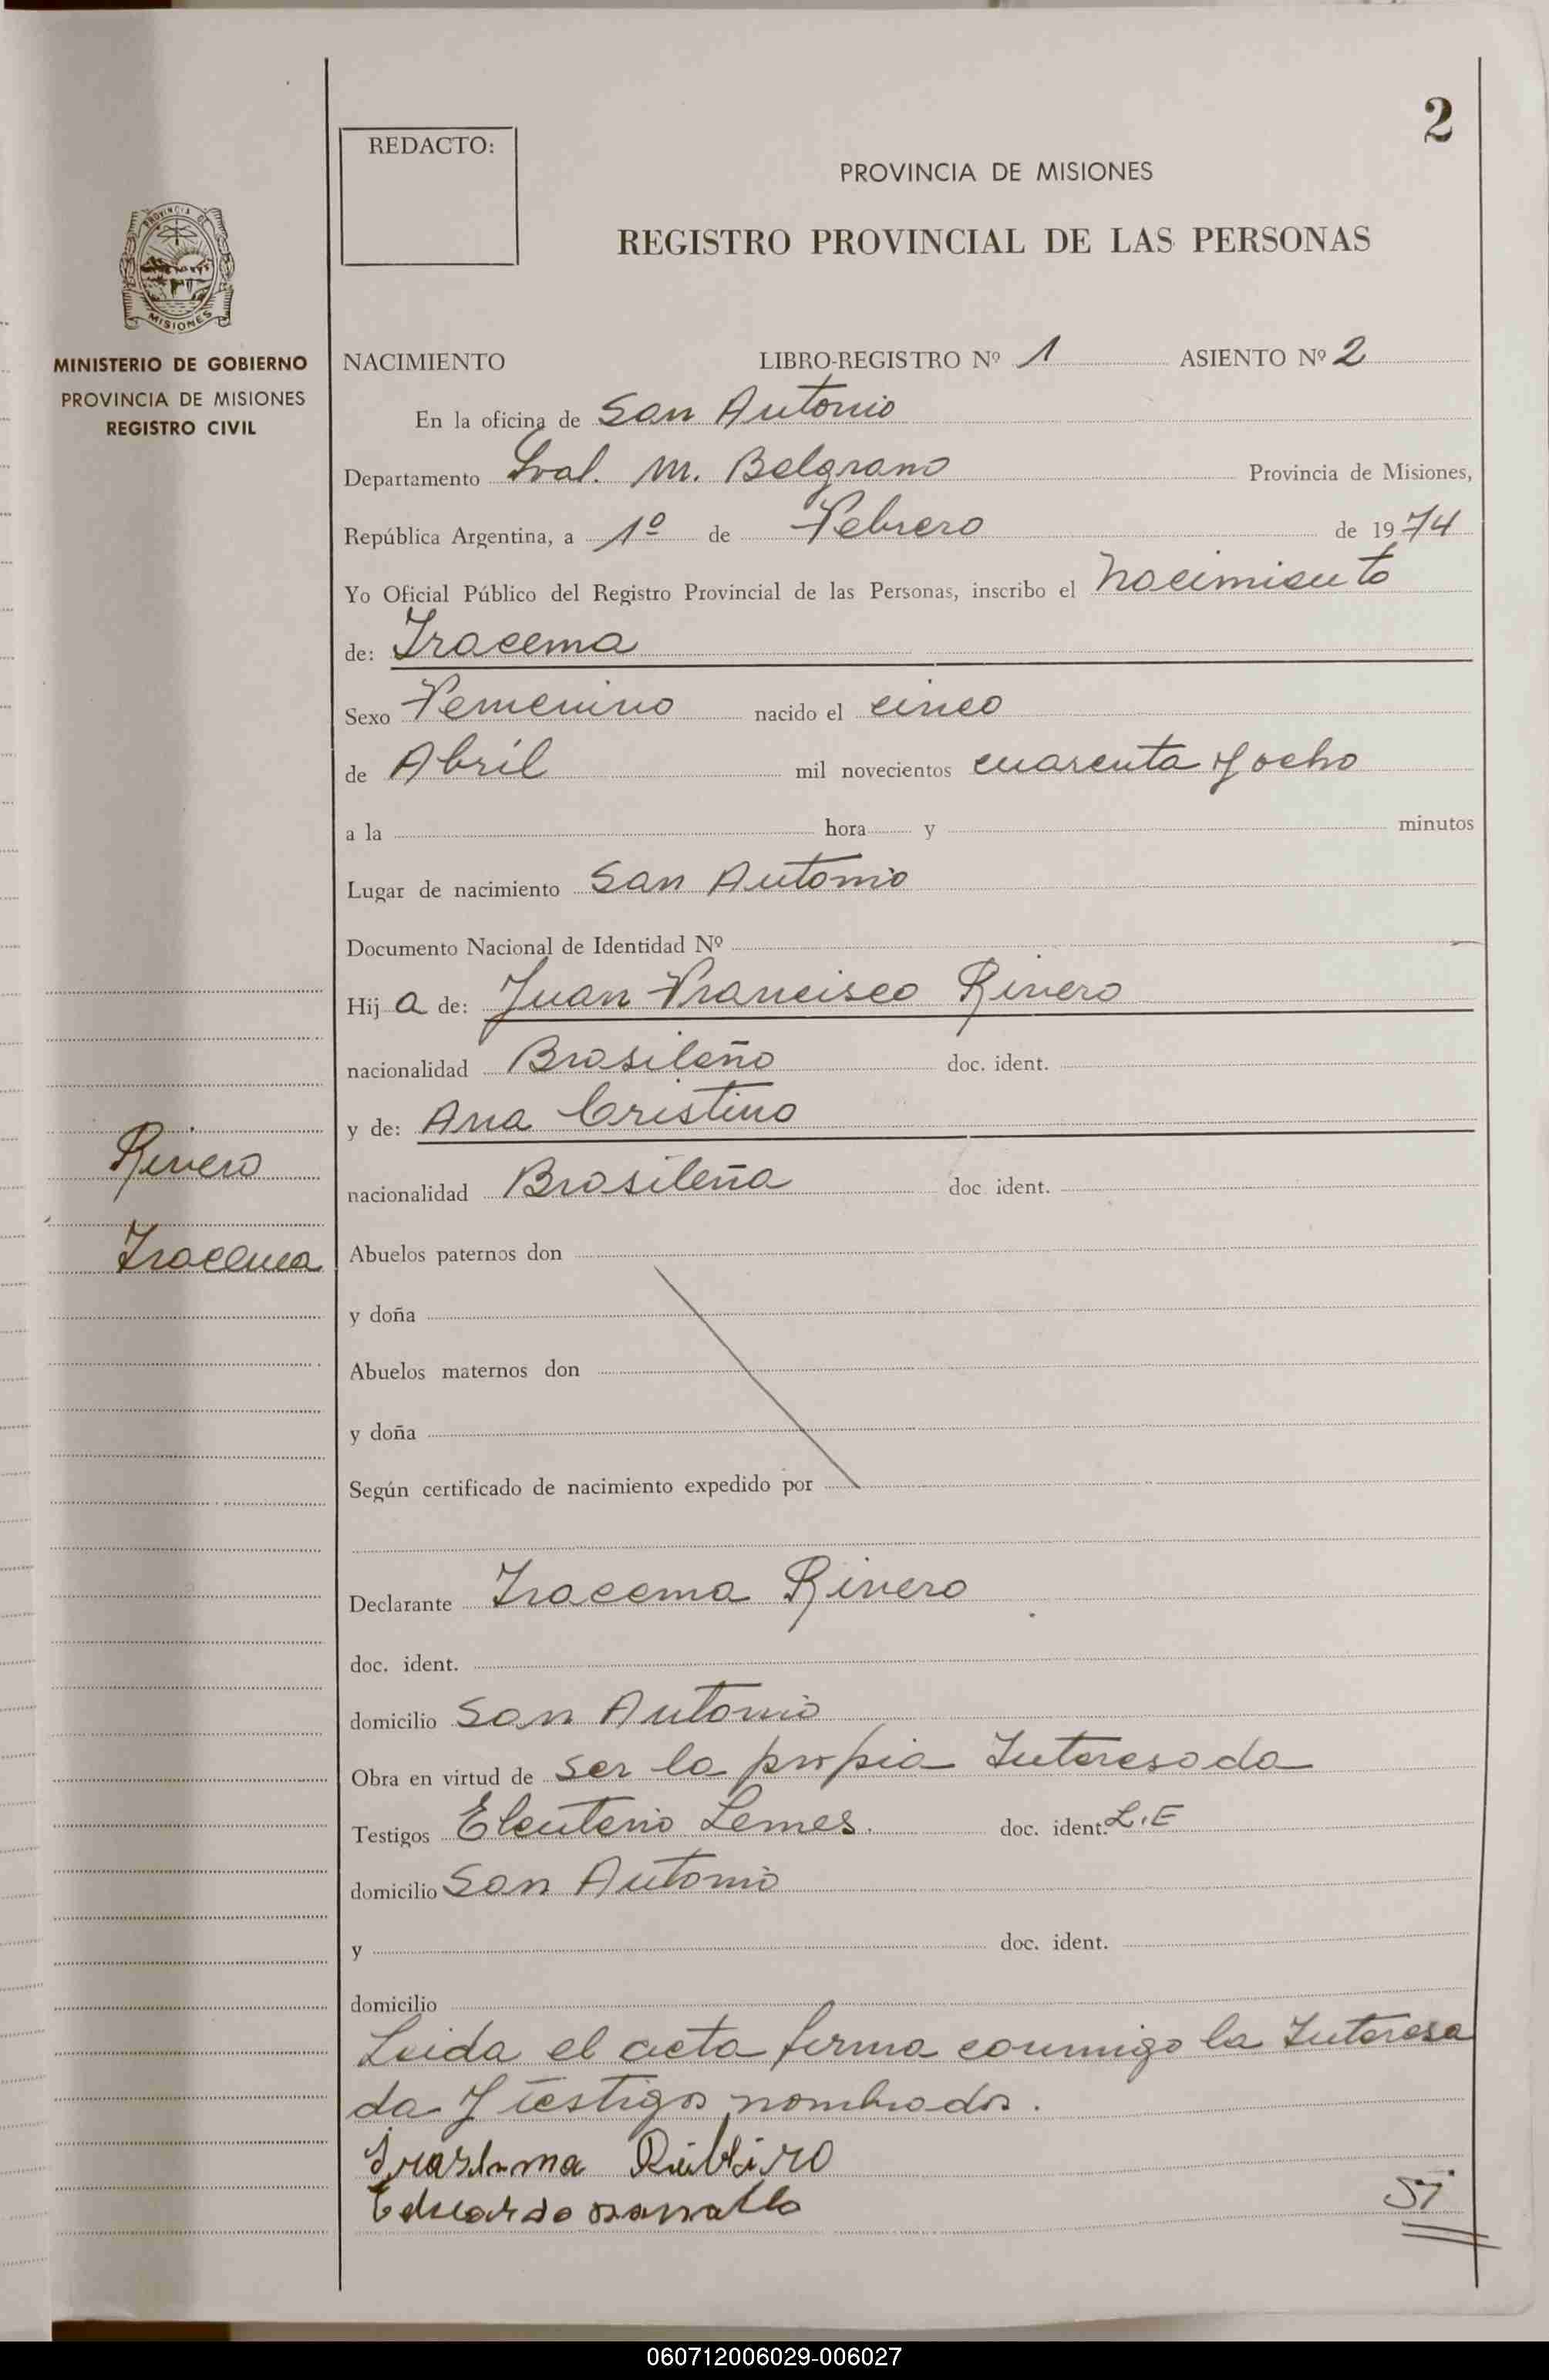 2
REDACTO:
PROVINCIA DE MISIONES
REGISTRO PROVINCIAL DE LAS PERSONAS
PROVINCIA DE
MISIONES
MINISTERIO DE GOBIERNO
PROVINCIA DE MISIONES
REGISTRO CIVIL
NACIMIENTO LIBRO-REGISTRO Nº 1 ASIENTO Nº 2
En la oficina de San Antonio
Departamento Gral. M. Belgrano Provincia de Misiones,
República Argentina, a 1º de Febrero de 1974
Yo Oficial Público del Registro Provincial de las Personas, inscribo el Nacimiento
de: Iracema
Sexo Femenino nacido el cinco
de Abril mil novecientos cuarenta y ocho
a la hora y minutos
Lugar de nacimiento San Antonio
Documento Nacional de Identidad Nº
Hij a de: Juan Francisco Rivero
nacionalidad Brasileño doc. ident.
y de: Ana Cristino
nacionalidad Brasileña doc. ident.
Rivero
Iracema
Abuelos paternos don
y doña
Abuelos maternos don
y doña
Según certificado de nacimiento expedido por
Declarante Iracema Rivero
doc. ident.
domicilio San Antonio
Obra en virtud de ser la propia Interesada
Testigos Eleuterio Lemes. doc. ident. L.E
domicilio San Antonio
y doc. ident.
domicilio
Leida el acta firma conmigo la Interesa
da y testigos nombrados.
Eduardo
060712006029-006027